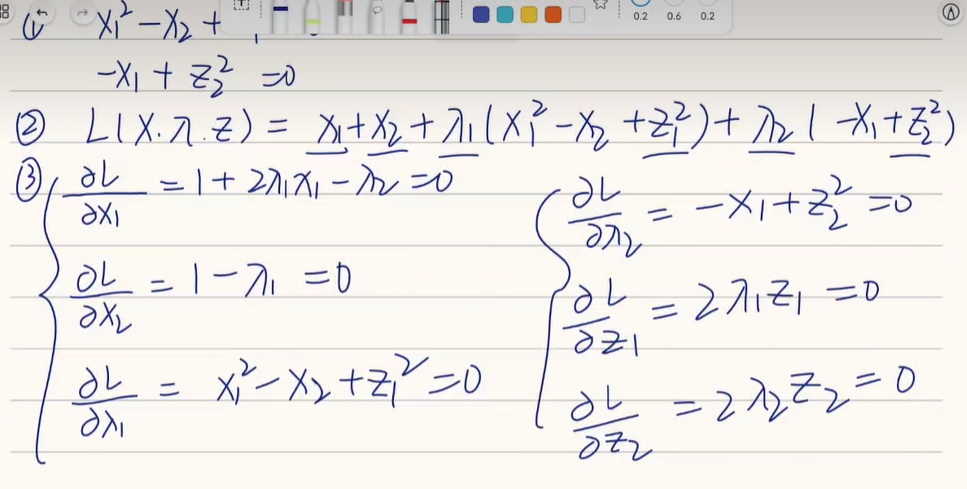 0.2 0.6 0.2
① x₁² - x₂ +
-x₁ + z₂² = 0
② L(x.λ.z) = x₁ + x₂ + λ₁(x₁² - x₂ + z₁²) + λ₂(-x₁ + z₂²)
③ ∂L/∂x₁ = 1 + 2λ₁x₁ - λ₂ = 0
∂L/∂x₂ = 1 - λ₁ = 0
∂L/∂λ₁ = x₁² - x₂ + z₁² = 0
∂L/∂λ₂ = -x₁ + z₂² = 0
∂L/∂z₁ = 2λ₁z₁ = 0
∂L/∂z₂ = 2λ₂z₂ = 0